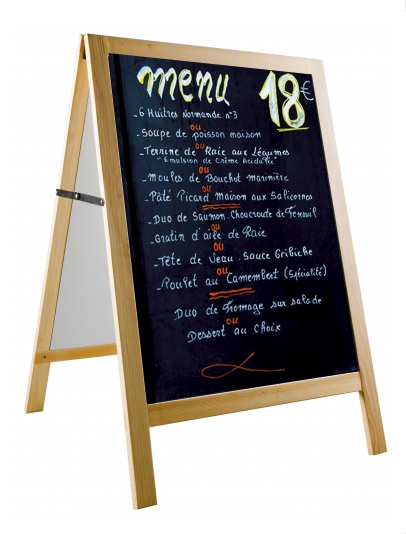 menu 18€
- 6 Huîtres Normande n°3
ou
- Soupe de poisson maison
ou
- Terrine de Raie aux Légumes
"Emulsion de Crème Acidulée"
ou
- Moules de Bouchot marinière
ou
- Pâté Picard Maison aux Salicornes
- Duo de Saumon. Choucroute de Fenouil
ou
- Gratin d'aile de Raie
ou
- Tête de Veau. Sauce Gribiche
ou
- Poulet au Camembert (Spécialité)
Duo de fromage sur salade
ou
Dessert au Choix